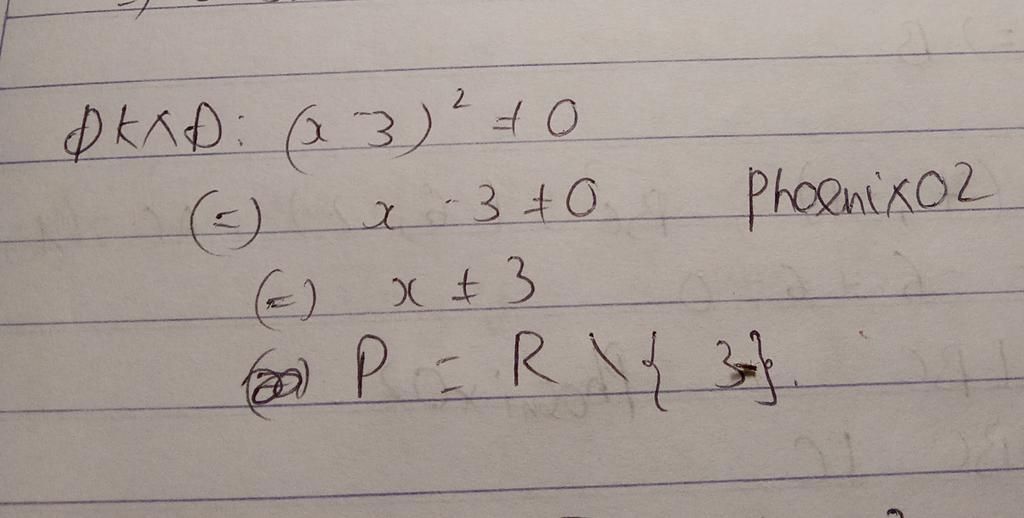 ĐKXĐ: (x - 3)² ≠ 0
(=) x - 3 ≠ 0 Phoenix02
(=) x ≠ 3
P = R \ { 3 }.